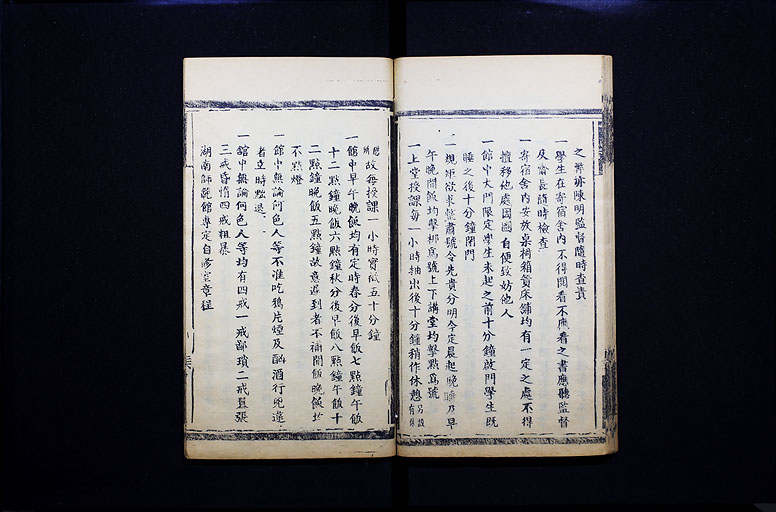 之弊詠陳明監督隨時查責
一學生在寄宿舍內不得閱看不應看之書應聽監督
及齋長隨時檢查
一寄宿舍內安放桌椅箱簀床鋪均有一定之處不得
擅移他處因圖自便致妨他人
一館中大門限定學生未起之前十分鐘啟門學生既
睡之後十分鐘閉門
一規矩欲求整肅號令先貴分明今定晨起晚睡乃早
午晚開飯均擊梆為號上下講堂均擊點為號
一上堂授課每一小時抽出後十分鐘稍作休憩
故每授課一小時實祗五十分鐘
一館中早午晚飯均有定時春分後早飯七點鐘午飯
十二點鐘晚飯六點鐘秋分後早飯八點鐘午飯十
二點鐘晚飯五點鐘故意遲到者不補開飯晚飯此
不點燈
一館中無論何色人等不准吃鴉片煙及酗酒行兇違
者立時黜退
一館中無論何色人等均有四戒一戒鄙瑣二戒囂張
三戒昏惰四戒粗暴
湖南師範館專定自修室章程